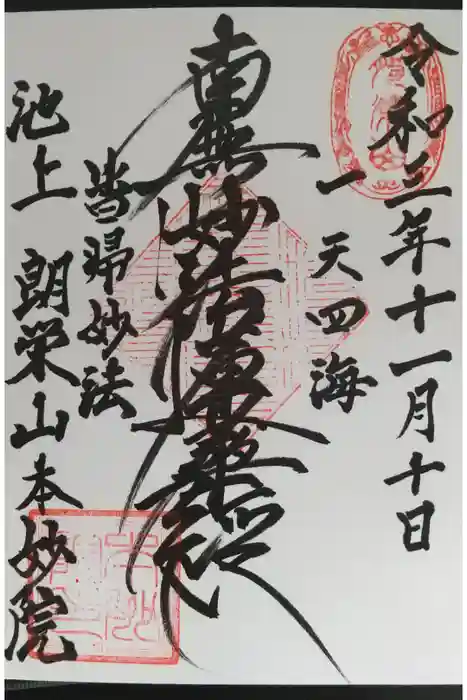 令和三年十一月十日
一天四海
南無妙法蓮華経
皆帰妙法
池上 朗栄山本妙院